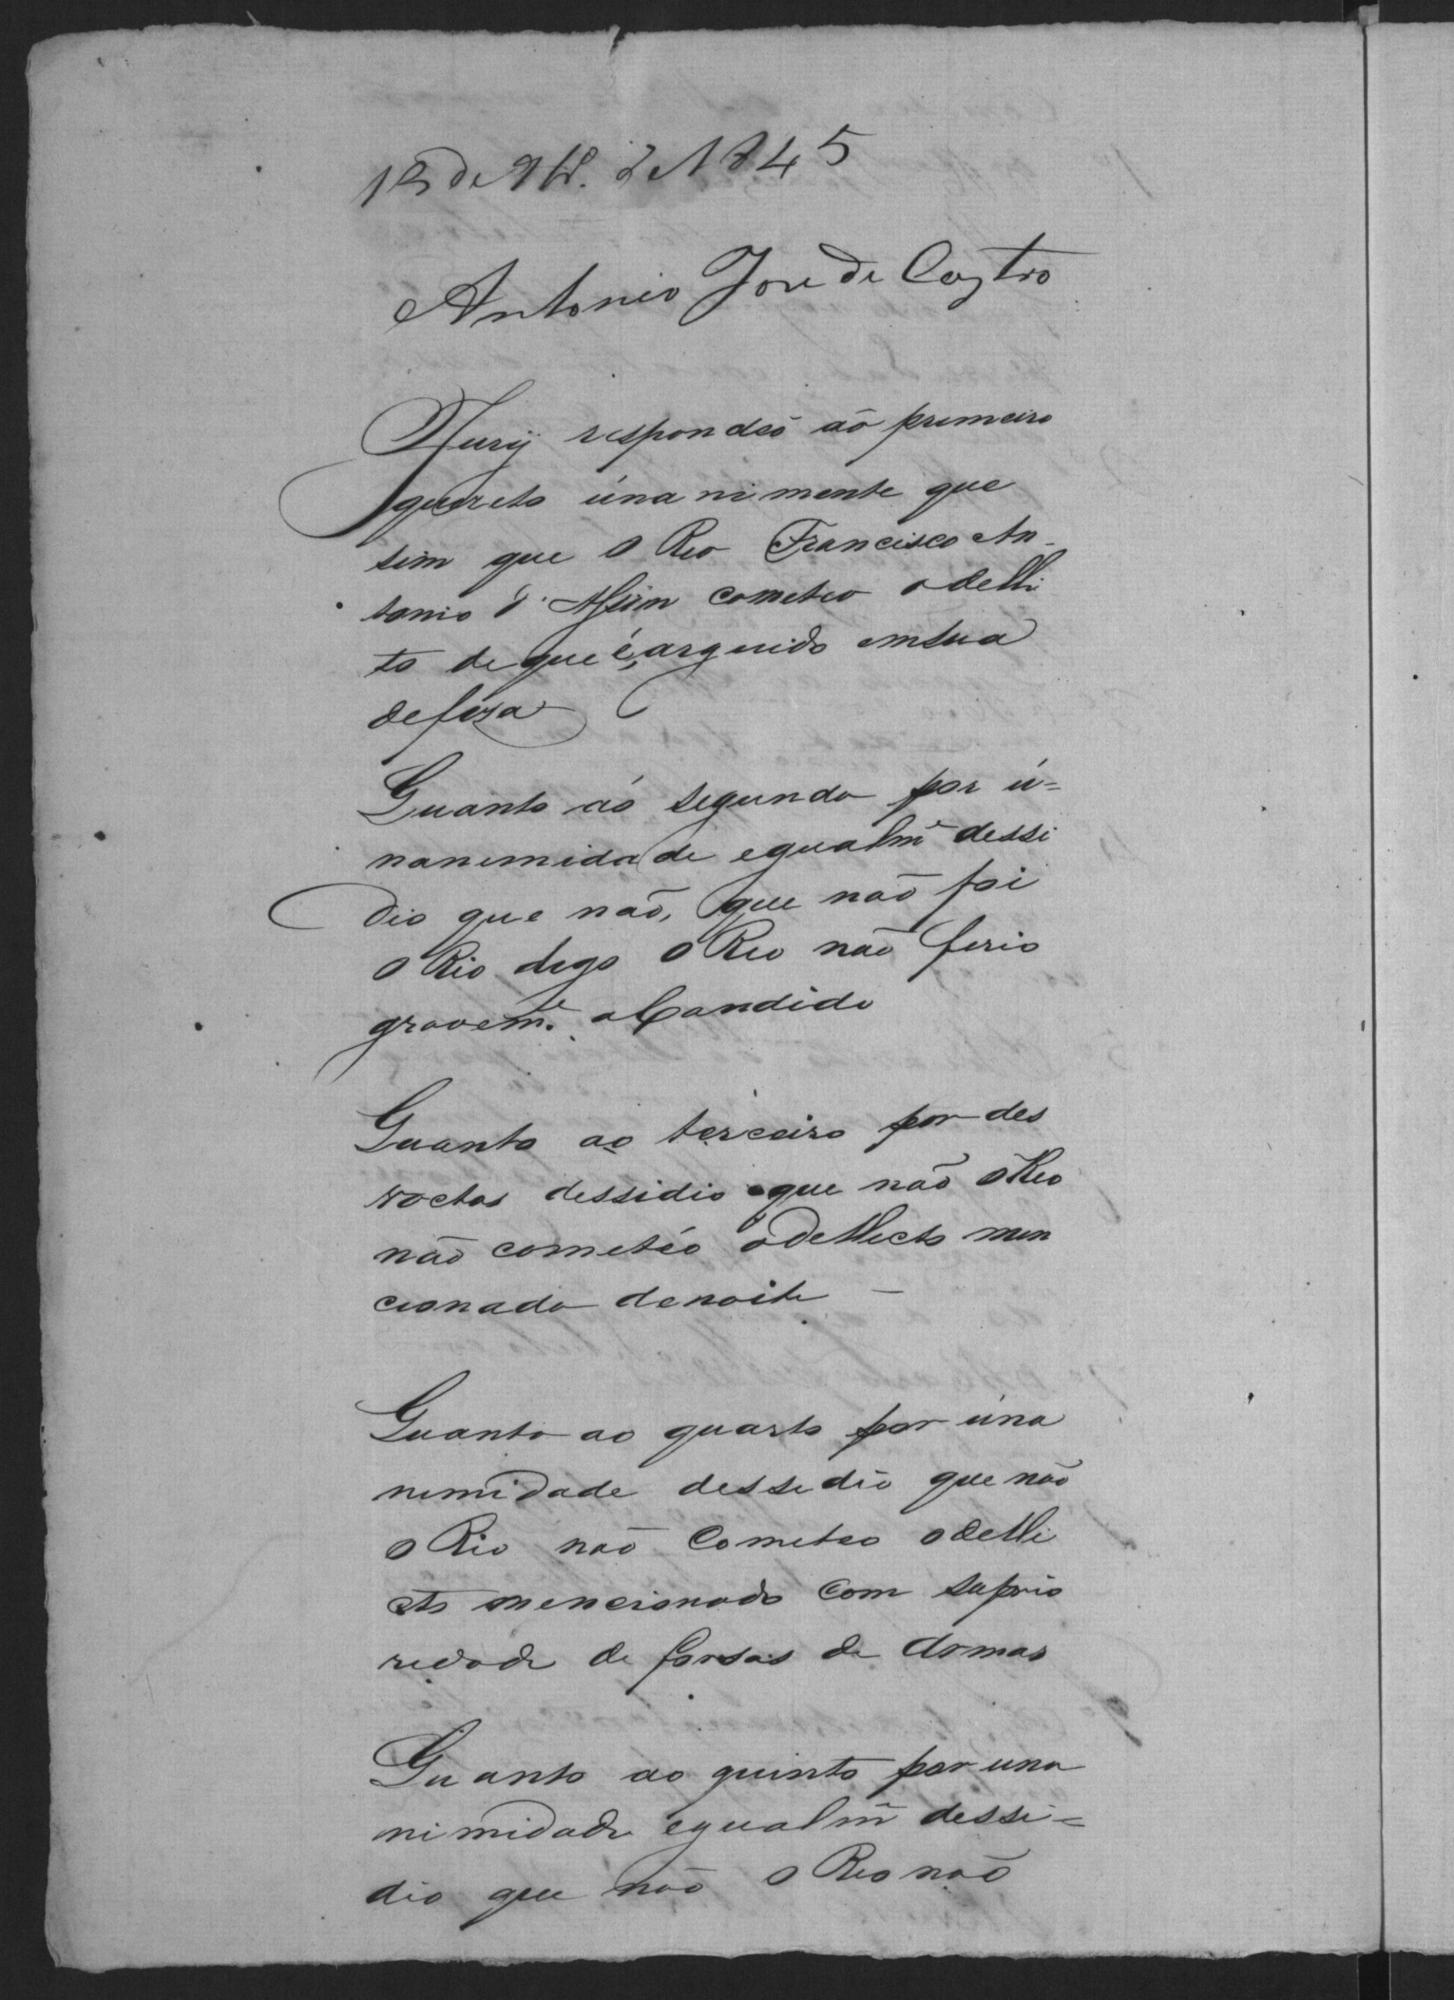 de 1845
Antonio Jose de Castro
Jury respondeo ao primeiro
quezeto únanimente que
sim que o Reo Francisco An-
tonio d' Assim cometeo o delli
to de que é arguido em sua
defeza
Quanto aó segundo por ú=
nanemidade egualm̃ dessi
dio que não, que não foi
o Rio dego o Reo não ferio
gravem.e a Candido
Quanto ao terceiro por des
voctos dessidio que não o Reo
não cometéo o dellicto men
cionado denoite —
Quanto ao quarto por úna
nemidade dessedio que não
o Rio não Cometeo o delli
cto mencionado com suprio
redade de forsas de Armas
Quanto ao quinto por una
nimidade egualm̃ dessi=
dio que não o Reo não